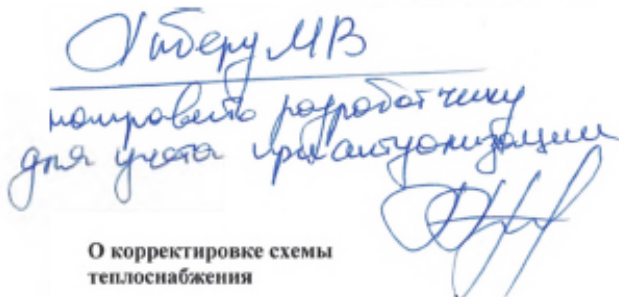 Хиберу МВ
направить разработчику
для учета при актуализации
О корректировке схемы
теплоснабжения